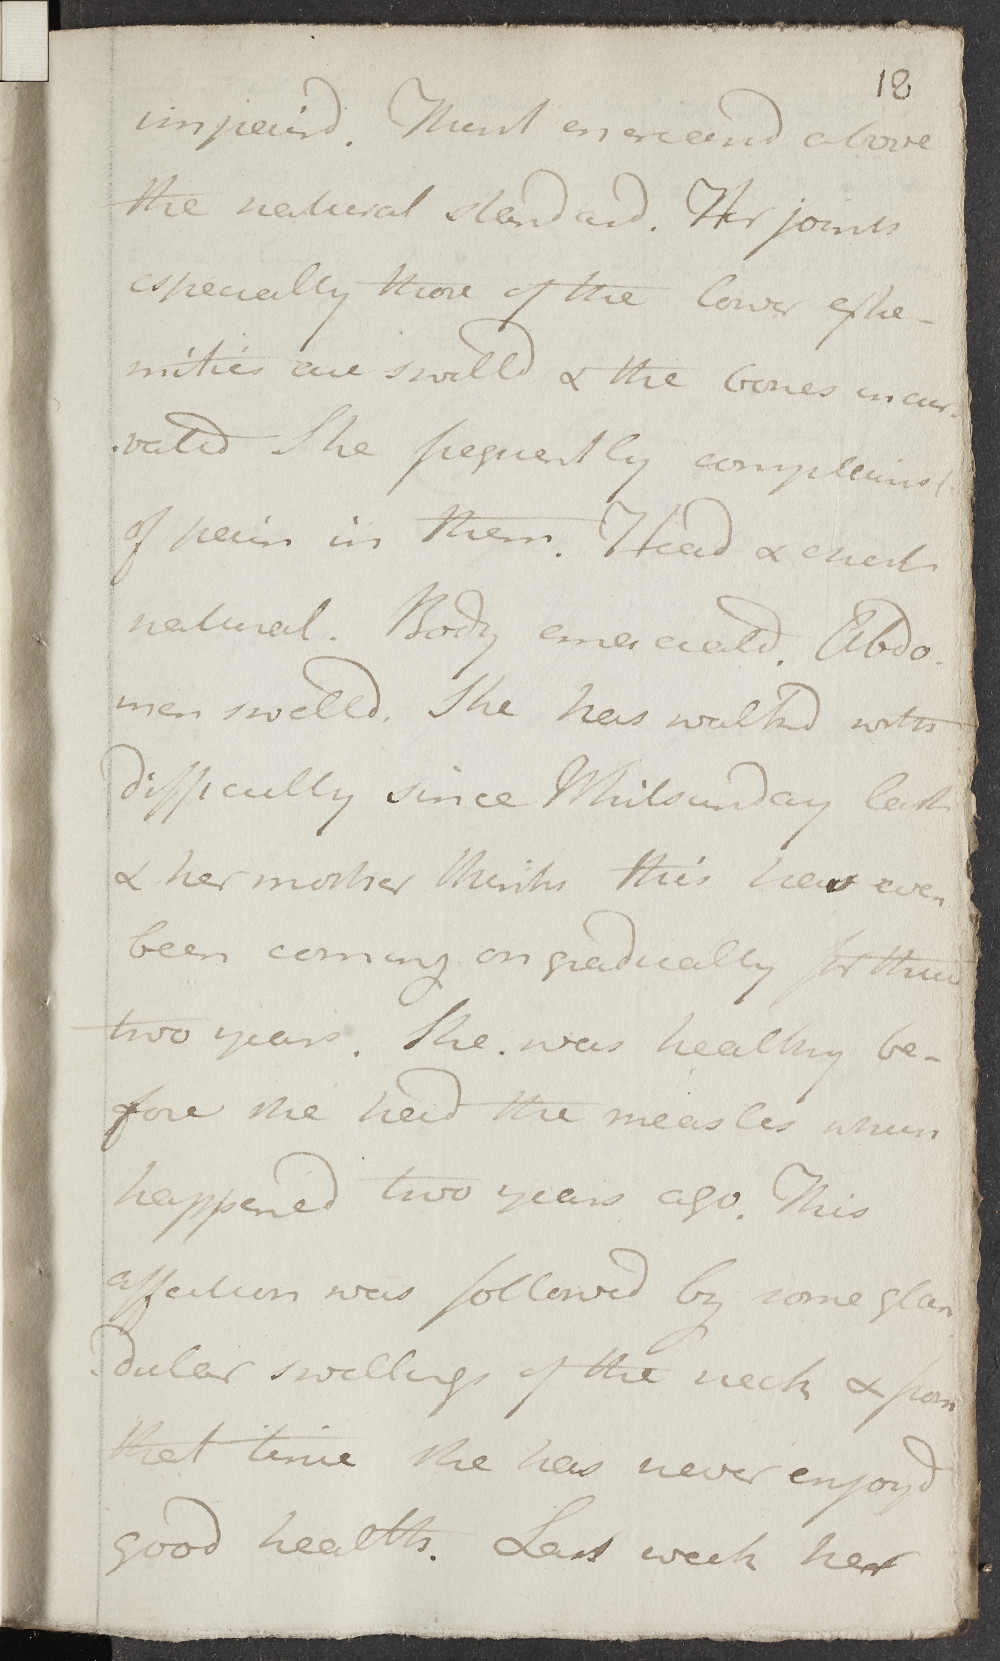 18
impaird. Thirst encreasd above
the natural standard. Her joints
especially those of the lower extre-
mities are swelld & the bones incur-
vated She frequently complains
of pain in them. Head & chest
natural. Body emaciated. Abdo-
men swelled. She has walked with
difficulty since Whitsunday last
& her mother thinks this has even
been coming on gradually for these
two years. She was healthy be-
fore she had the measles which
happened two years ago. This
affection was followed by some glan
dular swellings of the neck & from
that time she has never enjoyd
good health. Last week her